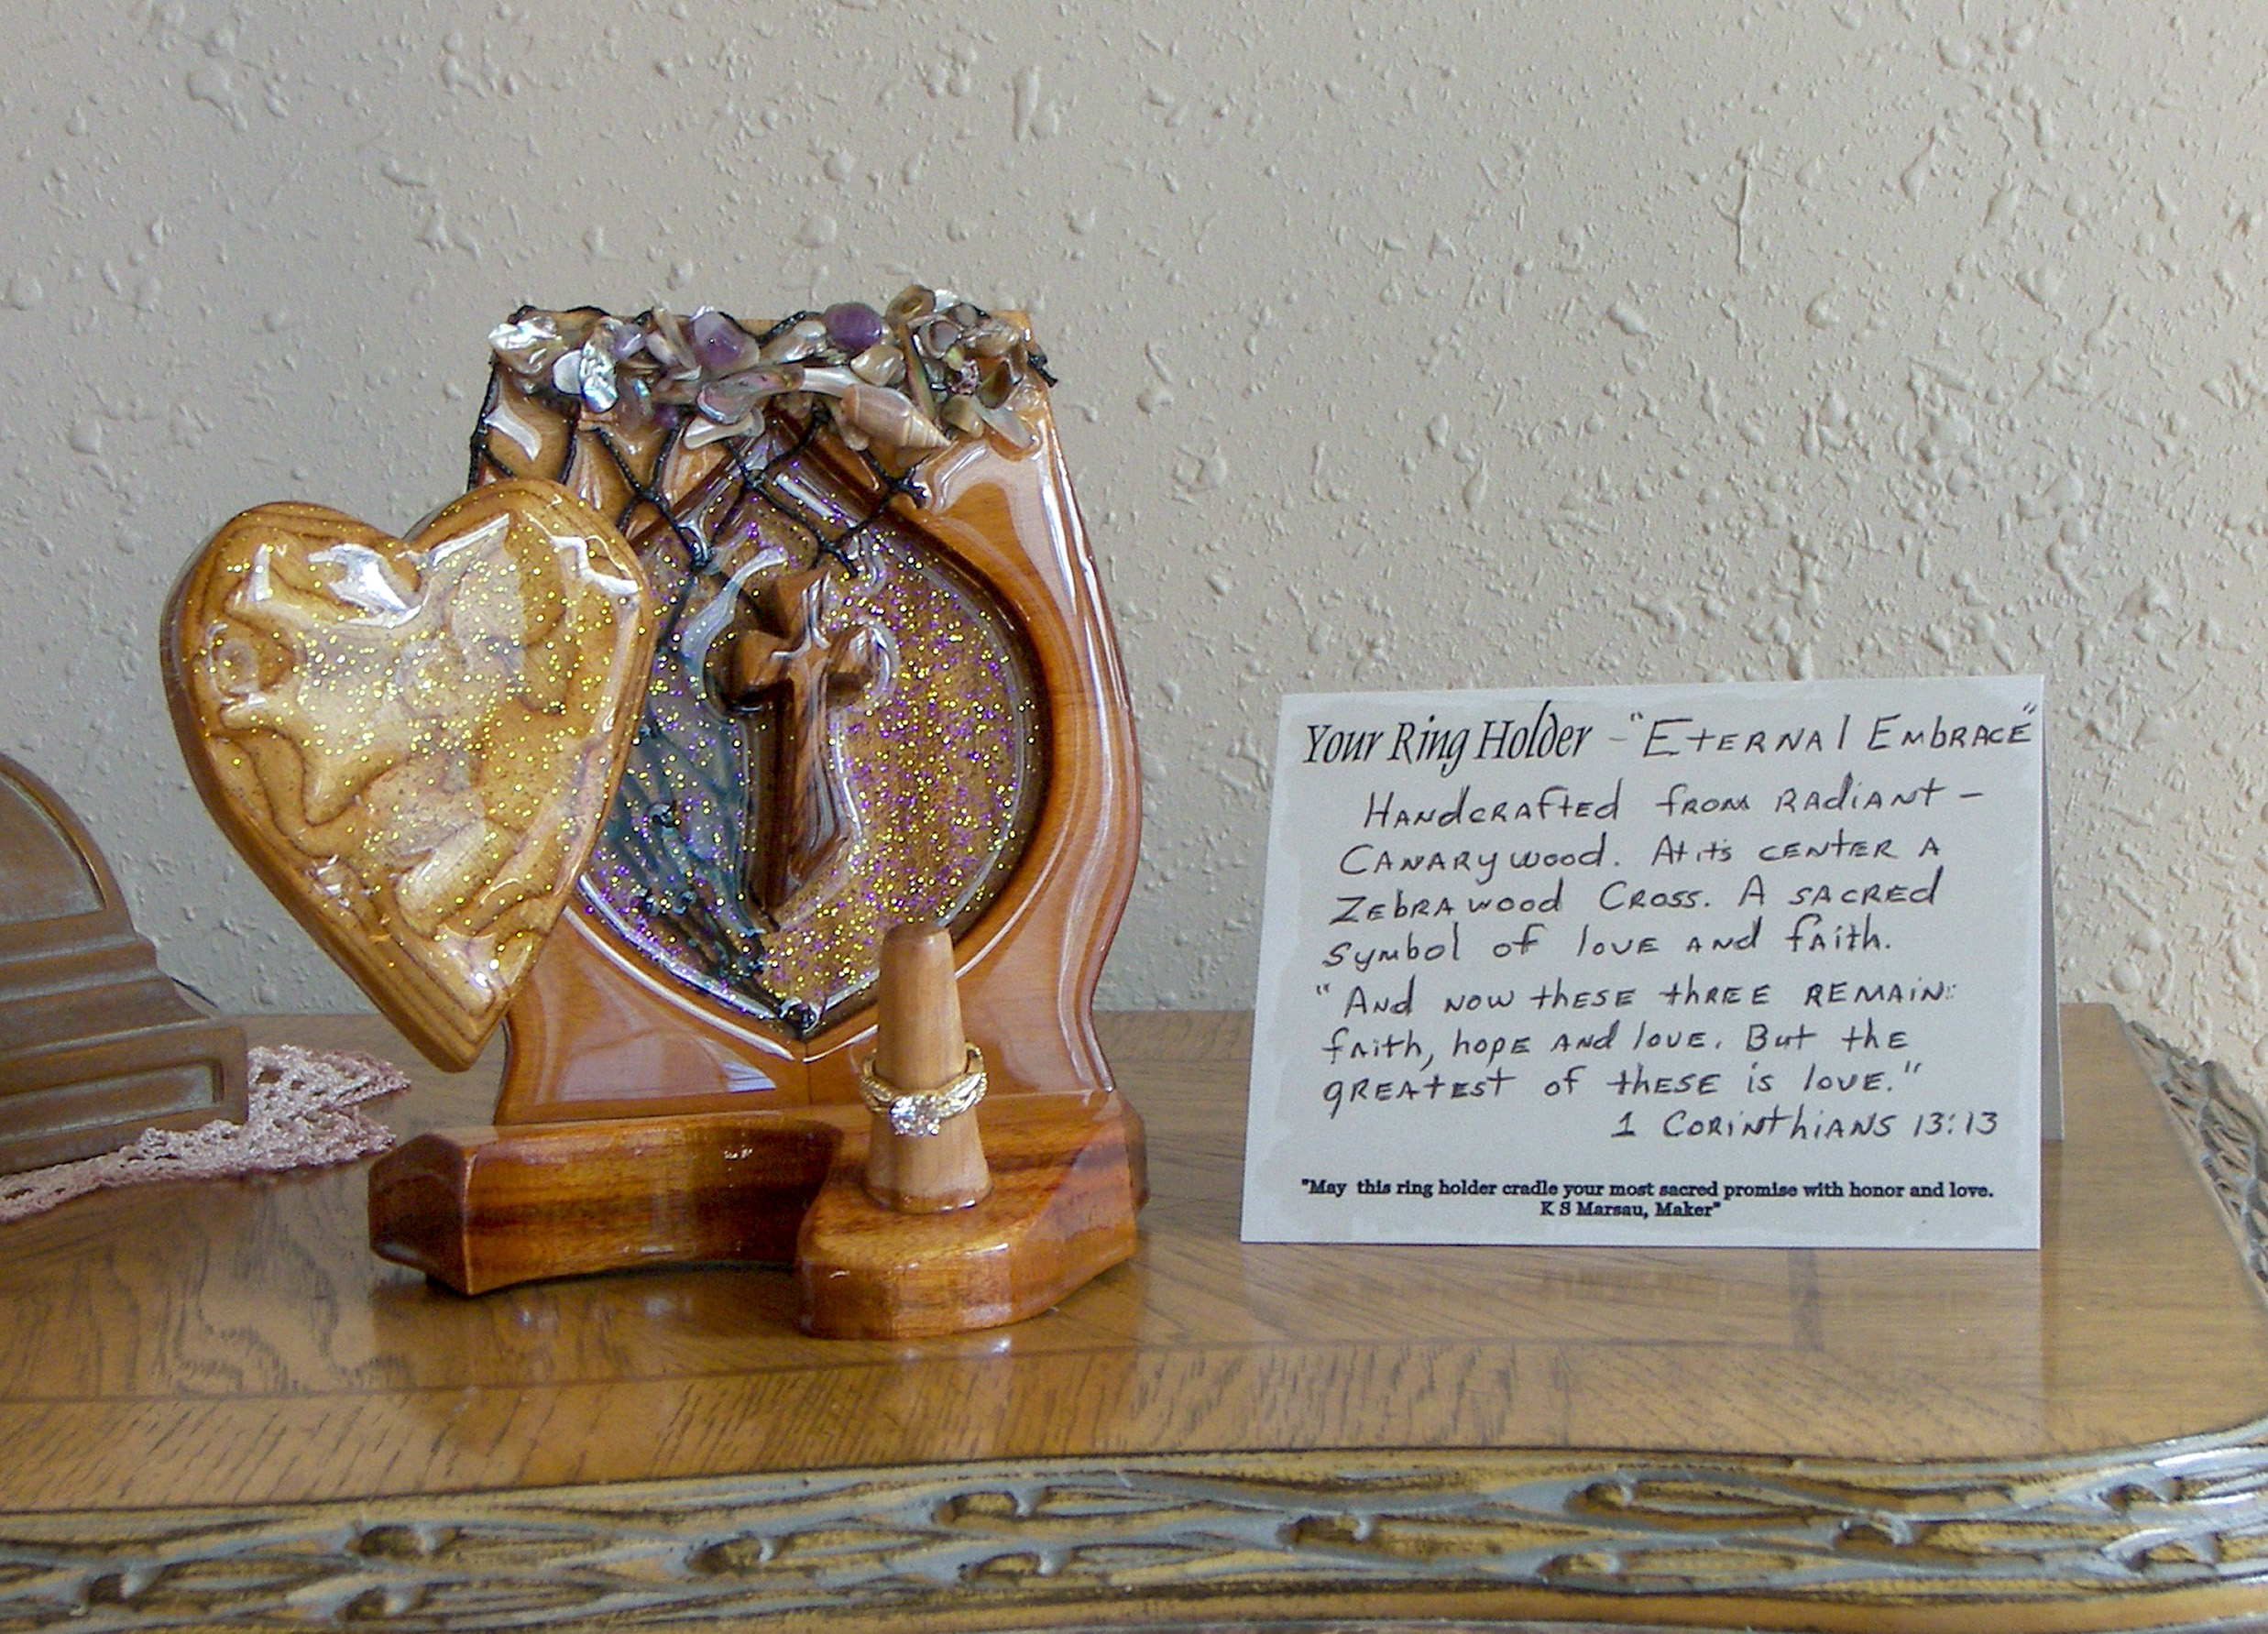 Your Ring Holder - "Eternal Embrace"
Handcrafted from radiant -
Canarywood. At its center a
Zebrawood Cross. A sacred
symbol of love and faith.
"And now these three remain:
faith, hope and love. But the
greatest of these is love."
1 Corinthians 13:13
"May this ring holder cradle your most sacred promise with honor and love.
K S Marsau, Maker"